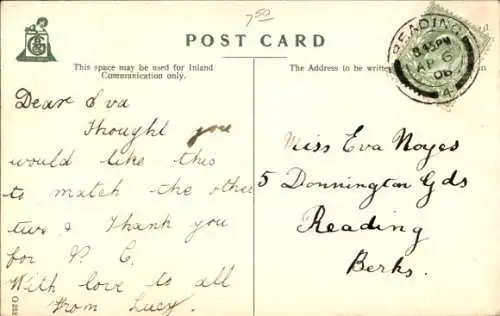 750
POST CARD
This space may be used for Inland
Communication only.
The Address to be written
READING
8 45 PM
AP 6
06
4
Dear Eva
Thought you
would like this
to match the other
two & Thank you
for P. C.
With love to all
From Lucy.
Miss Eva Noyes
5 Donnington Gds
Reading
Berks.